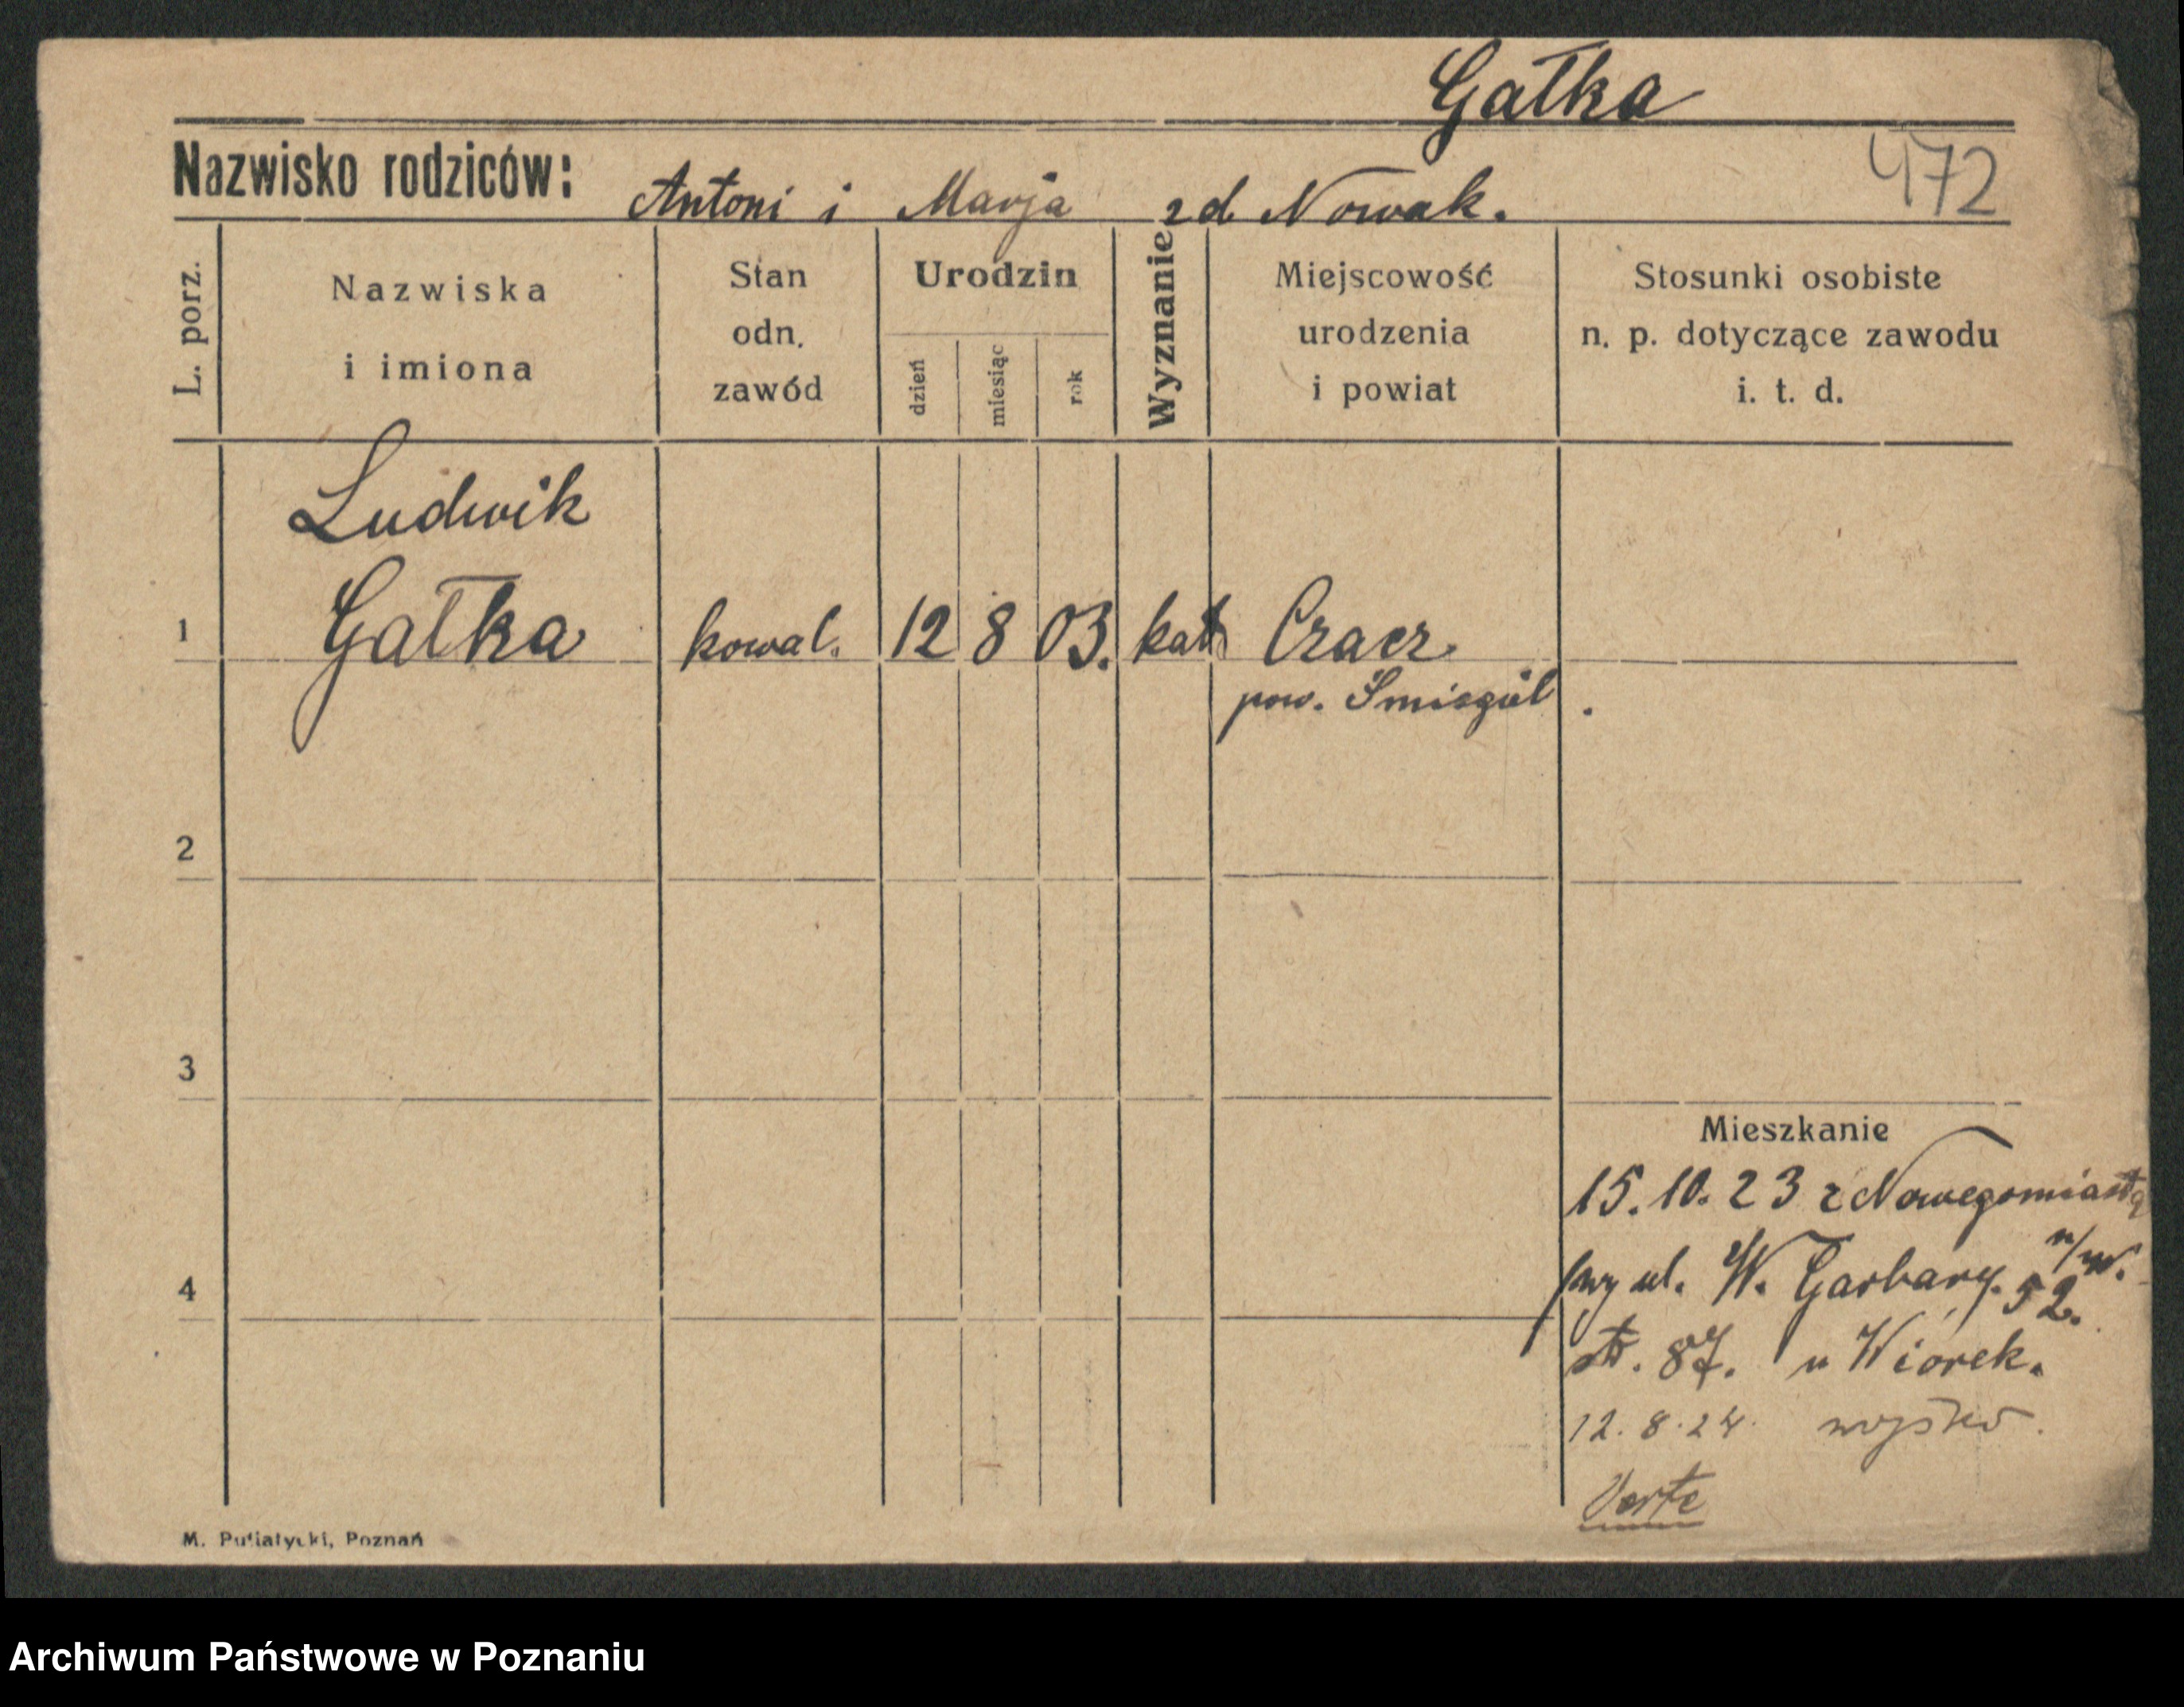 Gałka
Nazwisko rodziców: Antoni i Marja zd. Nowak. 472
L. porz.
Nazwiska
i imiona
Stan
odn.
zawód
Urodzin
dzień
miesiąc
rok
Wyznanie
Miejscowość
urodzenia
i powiat
Stosunki osobiste
n. p. dotyczące zawodu
i. t. d.
Ludwik
1 Gałka kowal. 12 8 03. kat. Czacz
pow. Śmigiel.
2
3
4
Mieszkanie
15.10.23 z Nowegomiasta
n/W.
przy ul. W. Garbary. 52.
str. 87. u Wiórek.
12.8.24. wojsko.
Verte
M. Putiatycki, Poznań
Archiwum Państwowe w Poznaniu